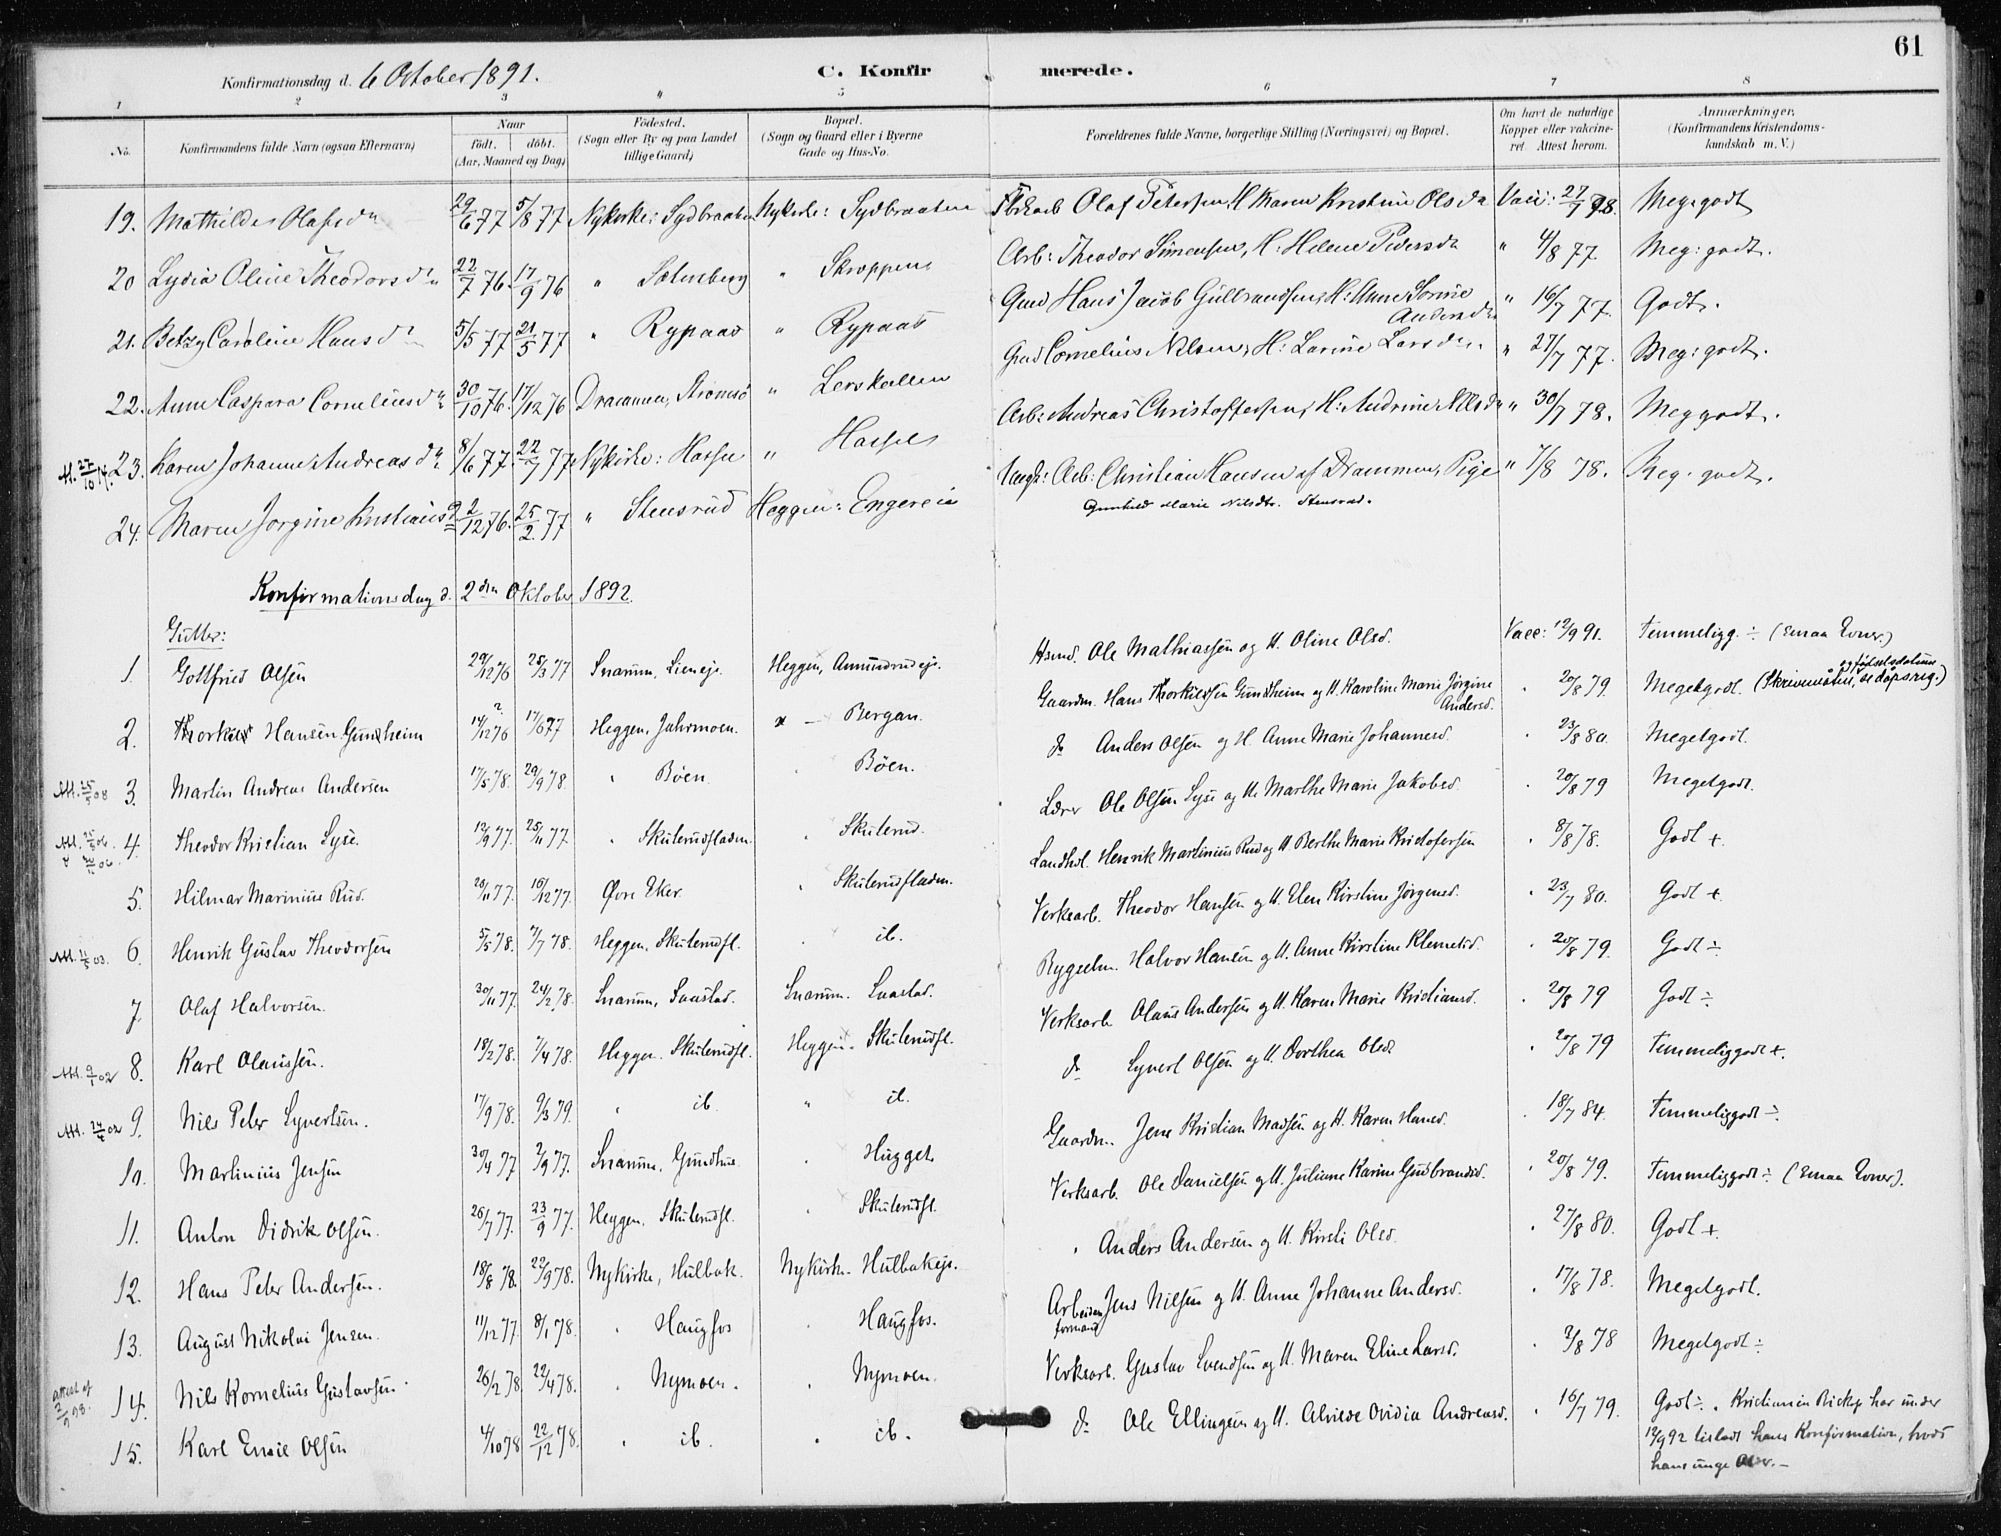 61
Konfirmationsdag d. 6 October 1891.
C. Konfirmerede.
1 2 3 4 5 6 7 8
No.
Konfirmandens fulde Navn (ogsaa Efternavn)
Naar
födt. döbt.
(Aar, Maaned og Dag)
Födested.
(Sogn eller By og paa Landet tillige Gaard)
Bopæl.
(Sogn og Gaard eller i Byerne Gade og Hus-No.
Forældrenes fulde Navne, borgerlige Stilling (Næringsvei) og Bopæl.
Om havt de naturlige Kopper eller vakcineret. Attest herom.
Anmærkninger.
(Konfirmandens Kristendomskundskab m. V.)
19. Mathilde Olafsdn 29/6 77 5/8 77 Nykirke: Sydbraaten Nykirke: Sydbraaten Olaf Petersen, H. Karen Kristine Olsdn Vacc: 27/7 78. Meg: godt
20 Lydia Oline Theodorsdn 22/7 76. 17/9 76 " Solensberg " Skroppen Arb: Theodor Simensen, H: Helene Pedersdn " 4/8 77. Meg: godt.
21. Betzy Caroline Hansdn 5/5 77 21/5 77 " Rypaas " Rypaas Gmd Hans Jacob Gulbrandsen, H: Anne Sorine Andersdn " 16/7 77. Godt.
22. Anne Caspara Corneliusdn 30/10 76. 17/12 76 Drammen, Strömsö " Lerskallen Gmd Cornelius Nilsen, H: Larine Larsdn. " 27/7 77. Meg: godt.
Att. 27/10 14. 23. Karen Johanne Andreasdn 8/6 77. 22/7 77 Nykirke: Hassel " Hassel Arb: Andreas Christoffersen, H: Andrine Nilsdn " 30/7 78. Meg godt.
24. Maren Jorgine Kristiansd 2/12 76. 25/2 77 " Stensrud Heggen: Engereie Uægt: Arb: Christian Hansen af Drammen, Pige Gunhild Marie Nilsdtr. Stensrud. " 7/8 78. Meg. godt.
Konfirmationsdag d. 2den Oktober 1892.
Gutter:
1. Gottfried Olsen 29/12 76 25/3 77 Snarum, Lieneje Heggen, Amundrudeje. Hsmd. Ole Mathiassen og H. Oline Olsd. Vacc: 12/9 91. Temmeligg. ÷ (Emaa Lower.)
2. Thorkild Hansen Gundheim 14/12 76 ? 17/6 77 Heggen, Jahrmoen. " — Bergan. Gaardm. Hans Thorkildsen Gundheim og H. Karoline Marie Jörgine Andersd. " 20/8 79. Megetgodt. (Skrivemåten, og födselsdatum se dåpsreg.)
Att. 25/5 08 3. Martin Andreas Andersen 17/5 78. 29/9 78. " Böen " Böen. do Anders Olsen og H. Anne Marie Johannesd. " 23/8 80. Megetgodt.
Att. 25/5 06. 4. Theodor Kristian Lyse. 12/9 77. 25/11 77. " Skuterudfladen. " Skuterud. Lærer Ole Olsen Lyse og H. Marthe Marie Jakobsd. " 20/8 79 Megetgodt.
5. Hilmar Marinius Rud. 28/11 77. 16/12 77. Övre Eker. " Skuterudfladen. Landhdl. Henrik Martinius Rud og H. Berthe Marie Kristofersen " 8/8 78. Godt +.
Att. 11/5 03. 6. Henrik Gustav Theodorsen 5/5 78. 7/7 78. Heggen, Skuterudfl. " ib. Verksarb. Theodor Hansen og H. Elen Kirstine Jörgensd. " 23/7 80. Godt +
7. Olaf Halvorsen. 30/11 77. 24/2 78. Snarum, Saastad. Snarum. Saastad. Bygselm. Halvor Hansen og H. Anne Kirstine Klemetsd. " 20/8 79. Godt ÷
Att. 9/1 02 8. Karl Olaussen. 18/2 78. 7/4 78. Heggen. Skuterudfl. Heggen. Skuterudfl. Verksarb. Olaus Andersen og H. Karen Marie Kristiansd. " 20/8 79 Godt ÷
Att. 24/4 02 9. Nils Peter Syvertsen. 17/9 78. 9/3 79. " ib " ib. do Syvert Olsen og H. Dorthea Olsd. " 20/8 79 Temmeliggodt +.
10. Martinius Jensen 30/4 77 2/9 77. Snarum, Gundhus " Hugget. Gaardm. Jens Kristian Madsen og H. Karen Hansd. " 18/7 84. Temmeliggodt ÷.
11. Anton Didrik Olsen. 26/7 77. 23/9 77. Heggen, Skuterudfl. " Skuterudfl. Verksarb. Ole Danielsen og H. Juliane Karine Gudbrandsd. " 20/8 79. Temmeliggodt ÷ (Emaa Lower).
12. Hans Peter Andersen. 18/8 78. 22/9 78. Nykirke, Hulbak. Nykirke. Hulbakeje. " Anders Andersen og H. Kirsti Olsd. " 27/8 80. Godt +.
13. August Nikolai Jensen. 11/12 77. 8/1 78. " Haugfos " Haugfos. Arbeidsformand Jens Nilsen og H. Anne Johanne Andersd. " 17/8 78. Megetgodt.
attest af 2/9 98. 14. Nils Kornelius Gustavsen. 26/2 78. 22/4 78. " Nymoen. " Nymoen. Verksarb. Gustav Svendsen og H. Maren Eline Larsd. " 2/8 78 Megetgodt ÷
15. Karl Emil Olsen 4/10 78 22/12 78. " ib. " ib. do Ole Ellingsen og H. Alvilde Ovidia Andreasd. " 16/7 79. Godt ÷. Kristiania Biskop har under
12/9 92 tilladt hans Konfirmation, trods
hans unge Alder. —